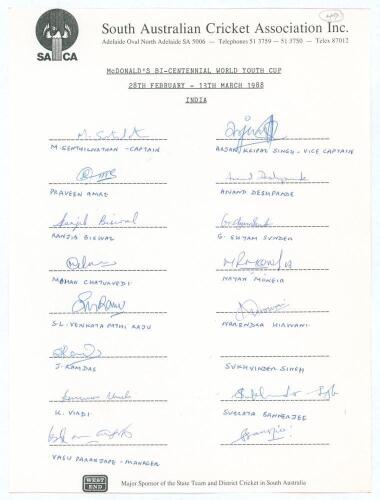 South Australian Cricket Association Inc.
Adelaide Oval North Adelaide SA 5006 — Telephones 51 3759 — 51 3750 — Telex 87012
SACA
McDONALD'S BI-CENTENNIAL WORLD YOUTH CUP
28TH FEBRUARY - 13TH MARCH 1988
INDIA
M. SENTHILNATHAN - CAPTAIN
ARJAN KRIPAL SINGH - VICE CAPTAIN
PRAVEEN AMRE
ANAND DESHPANDE
Ranjib Biswal
RANJIB BISWAL
G. SHYAM SUNDER
MOHAN CHATURVEDI
NAYAN MONGIA
S.L. VENKATA PATHI RAJU
NARENDRA HIRWANI
J. RAMDAS
SUKHVINDER SINGH
K. VIRDI
SUBRATA BANNERJEE
VASU PARANJAPE - MANAGER
WEST END
Major Sponsor of the State Team and District Cricket in South Australia